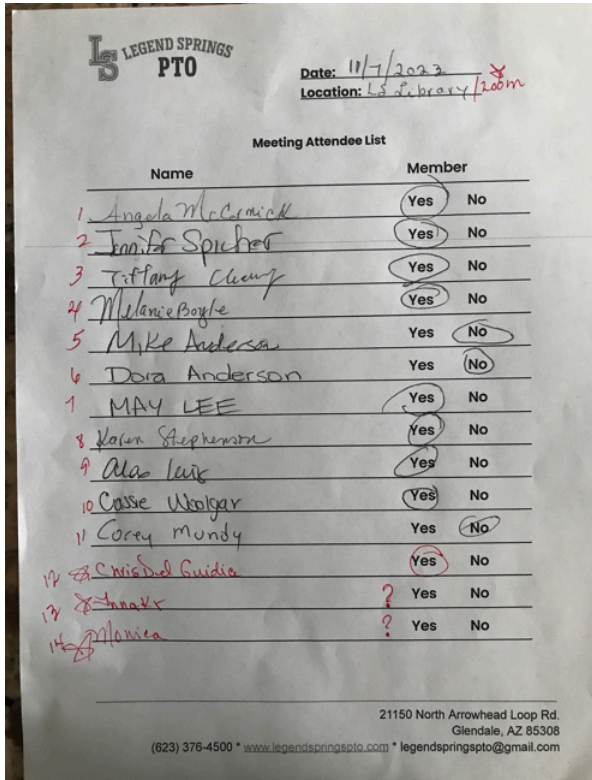 LS LEGEND SPRINGS
PTO
Date: 11/7/2023
Location: LS Library/zoom
Meeting Attendee List
Name Member
1 Angela McCormick Yes No
2 Jennifer Spicher Yes No
3 Tiffany Yes No
4 Melanie Boyle Yes No
5 Mike Anderson Yes No
6 Dora Anderson Yes No
7 MAY LEE Yes No
8 Karen Stephenson Yes No
9 Yes No
10 Cassie Woolgar Yes No
11 Corey Mundy Yes No
12 Chris Del Guidia Yes No
13 ? Yes No
14 Monica ? Yes No
21150 North Arrowhead Loop Rd.
Glendale, AZ 85308
(623) 376-4500 * www.legendspringspto.com * legendspringspto@gmail.com